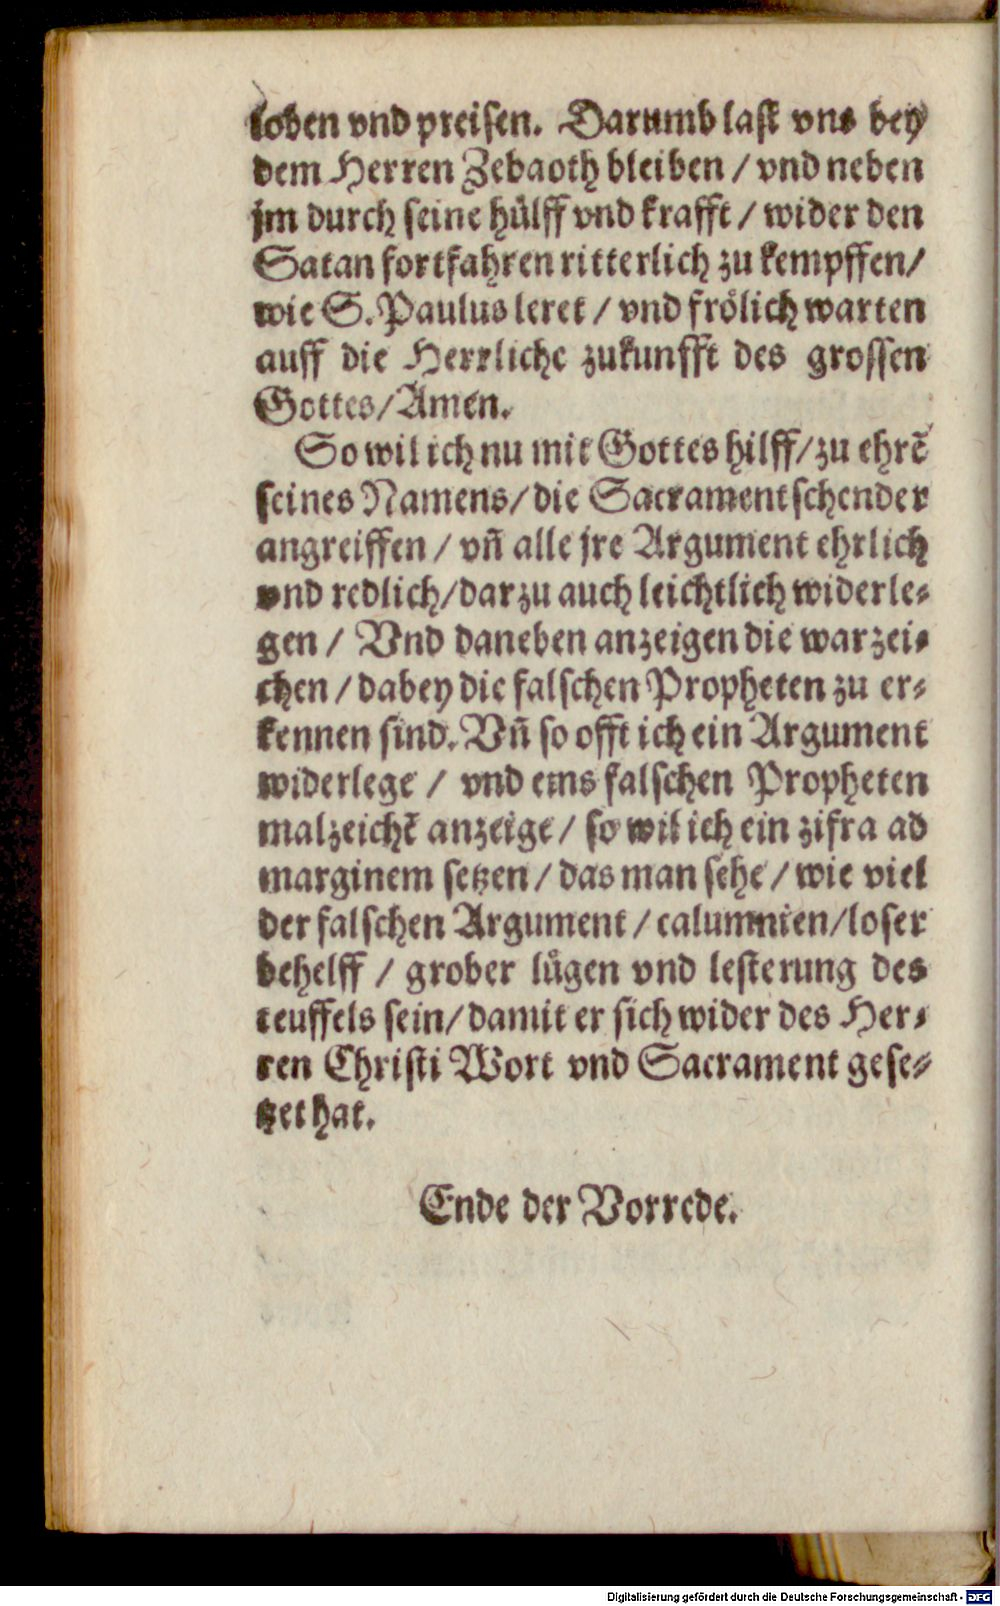 loben vnd preisen. Darumb last vns bey
dem Herren Zebaoth bleiben / vnd neben
jm durch seine hülff vnd krafft / wider den
Satan fortfahren ritterlich zu kempffen/
wie S. Paulus leret / vnd frölich warten
auff die Herrliche zukunfft des grossen
Gottes/ Amen.
So wil ich nu mit Gottes hilff/ zu ehrē
seines Namens/ die Sacramentschender
angreiffen / vñ alle jre Argument ehrlich
vnd redlich/ darzu auch leichtlich widerle-
gen / Vnd daneben anzeigen die warzei-
chen / dabey die falschen Propheten zu er-
kennen sind. Vñ so offt ich ein Argument
widerlege / vnd eins falschen Propheten
malzeichē anzeige / so wil ich ein zifra ad
marginem setzen / das man sehe / wie viel
der falschen Argument / calumnien/ loser
behelff / grober lügen vnd lesterung des
teuffels sein/ damit er sich wider des Her-
ren Christi Wort vnd Sacrament gese-
tzet hat.
Ende der Vorrede.
Digitalisierung gefördert durch die Deutsche Forschungsgemeinschaft - DFG